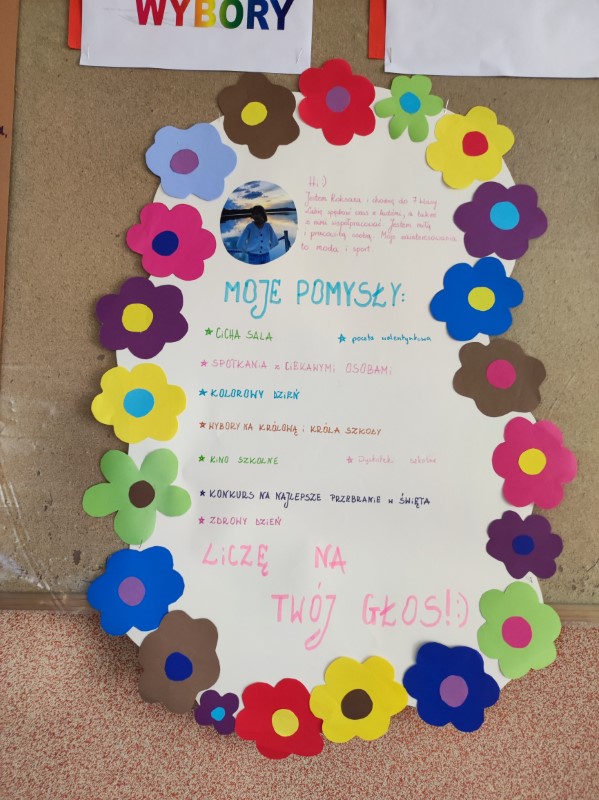 WYBORY
Hi ;)
Jestem Roksana i chodzę do 7 klasy
Lubię spędzać czas z ludźmi, a także
z nimi współpracować. Jestem miłą
i pracowitą osobą. Moje zainteresowania
to moda i sport.
MOJE POMYSŁY:
CICHA SALA
poczta walentynkowa
SPOTKANIA z CIEKAWYMI OSOBAMI
KOLOROWY DZIEŃ
WYBORY NA KRÓLOWĄ i KRÓLA SZKOŁY
KINO SZKOLNE
Dyskoteki szkolne
KONKURS NA NAJLEPSZE PRZEBRANIE W ŚWIĘTA
ZDROWY DZIEŃ
LICZĘ NA
TWÓJ GŁOS!:)